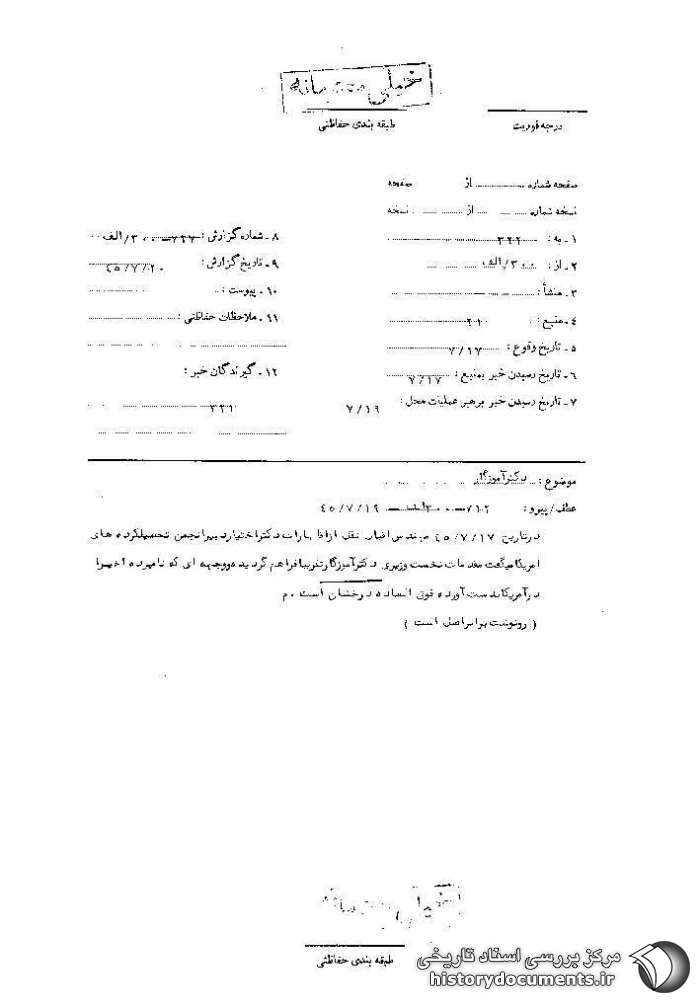 خیلی محرمانه
درجه فوریت
طبقه بندی حفاظتی
صفحه شماره از صفحه
نسخه شماره از نسخه
۱ـ به: ۳۲۲
۲ـ از: ۳۰۰/الف
۳ـ منشأ:
۴ـ منبع:
۵ـ تاریخ وقوع: ۷/۱۷
۶ـ تاریخ رسیدن خبر بمنبع: ۷/۱۷
۷ـ تاریخ رسیدن خبر برهبر عملیات محل: ۷/۱۹
۸ـ شماره گزارش: ۳۰۰/الف
۹ـ تاریخ گزارش: ۴۵/۷/۲۰
۱۰ـ پیوست:
۱۱ـ ملاحظات حفاظتی:
۱۲ـ گیرندگان خبر:
۳۲۱
موضوع: دکتر آموزگار
عطف/پیرو: ۴۵/۷/۱۹
درتاریخ ۴۵/۷/۱۷ مهندس افشار نقل از اظهارات دکتر اختیار دبیر انجمن تحصیلکرده های
امریکا میگفت مقدمات نخست وزیری دکتر آموزگار تقریبا فراهم گردیده ووجهه ای که نامبرده اخیرا
درآمریکا بدست آورده فوق العاده درخشان است . م
( رونوشت برابر اصل است )
خیلی محرمانه
طبقه بندی حفاظتی
مرکز بررسی اسناد تاریخی
historydocuments.ir